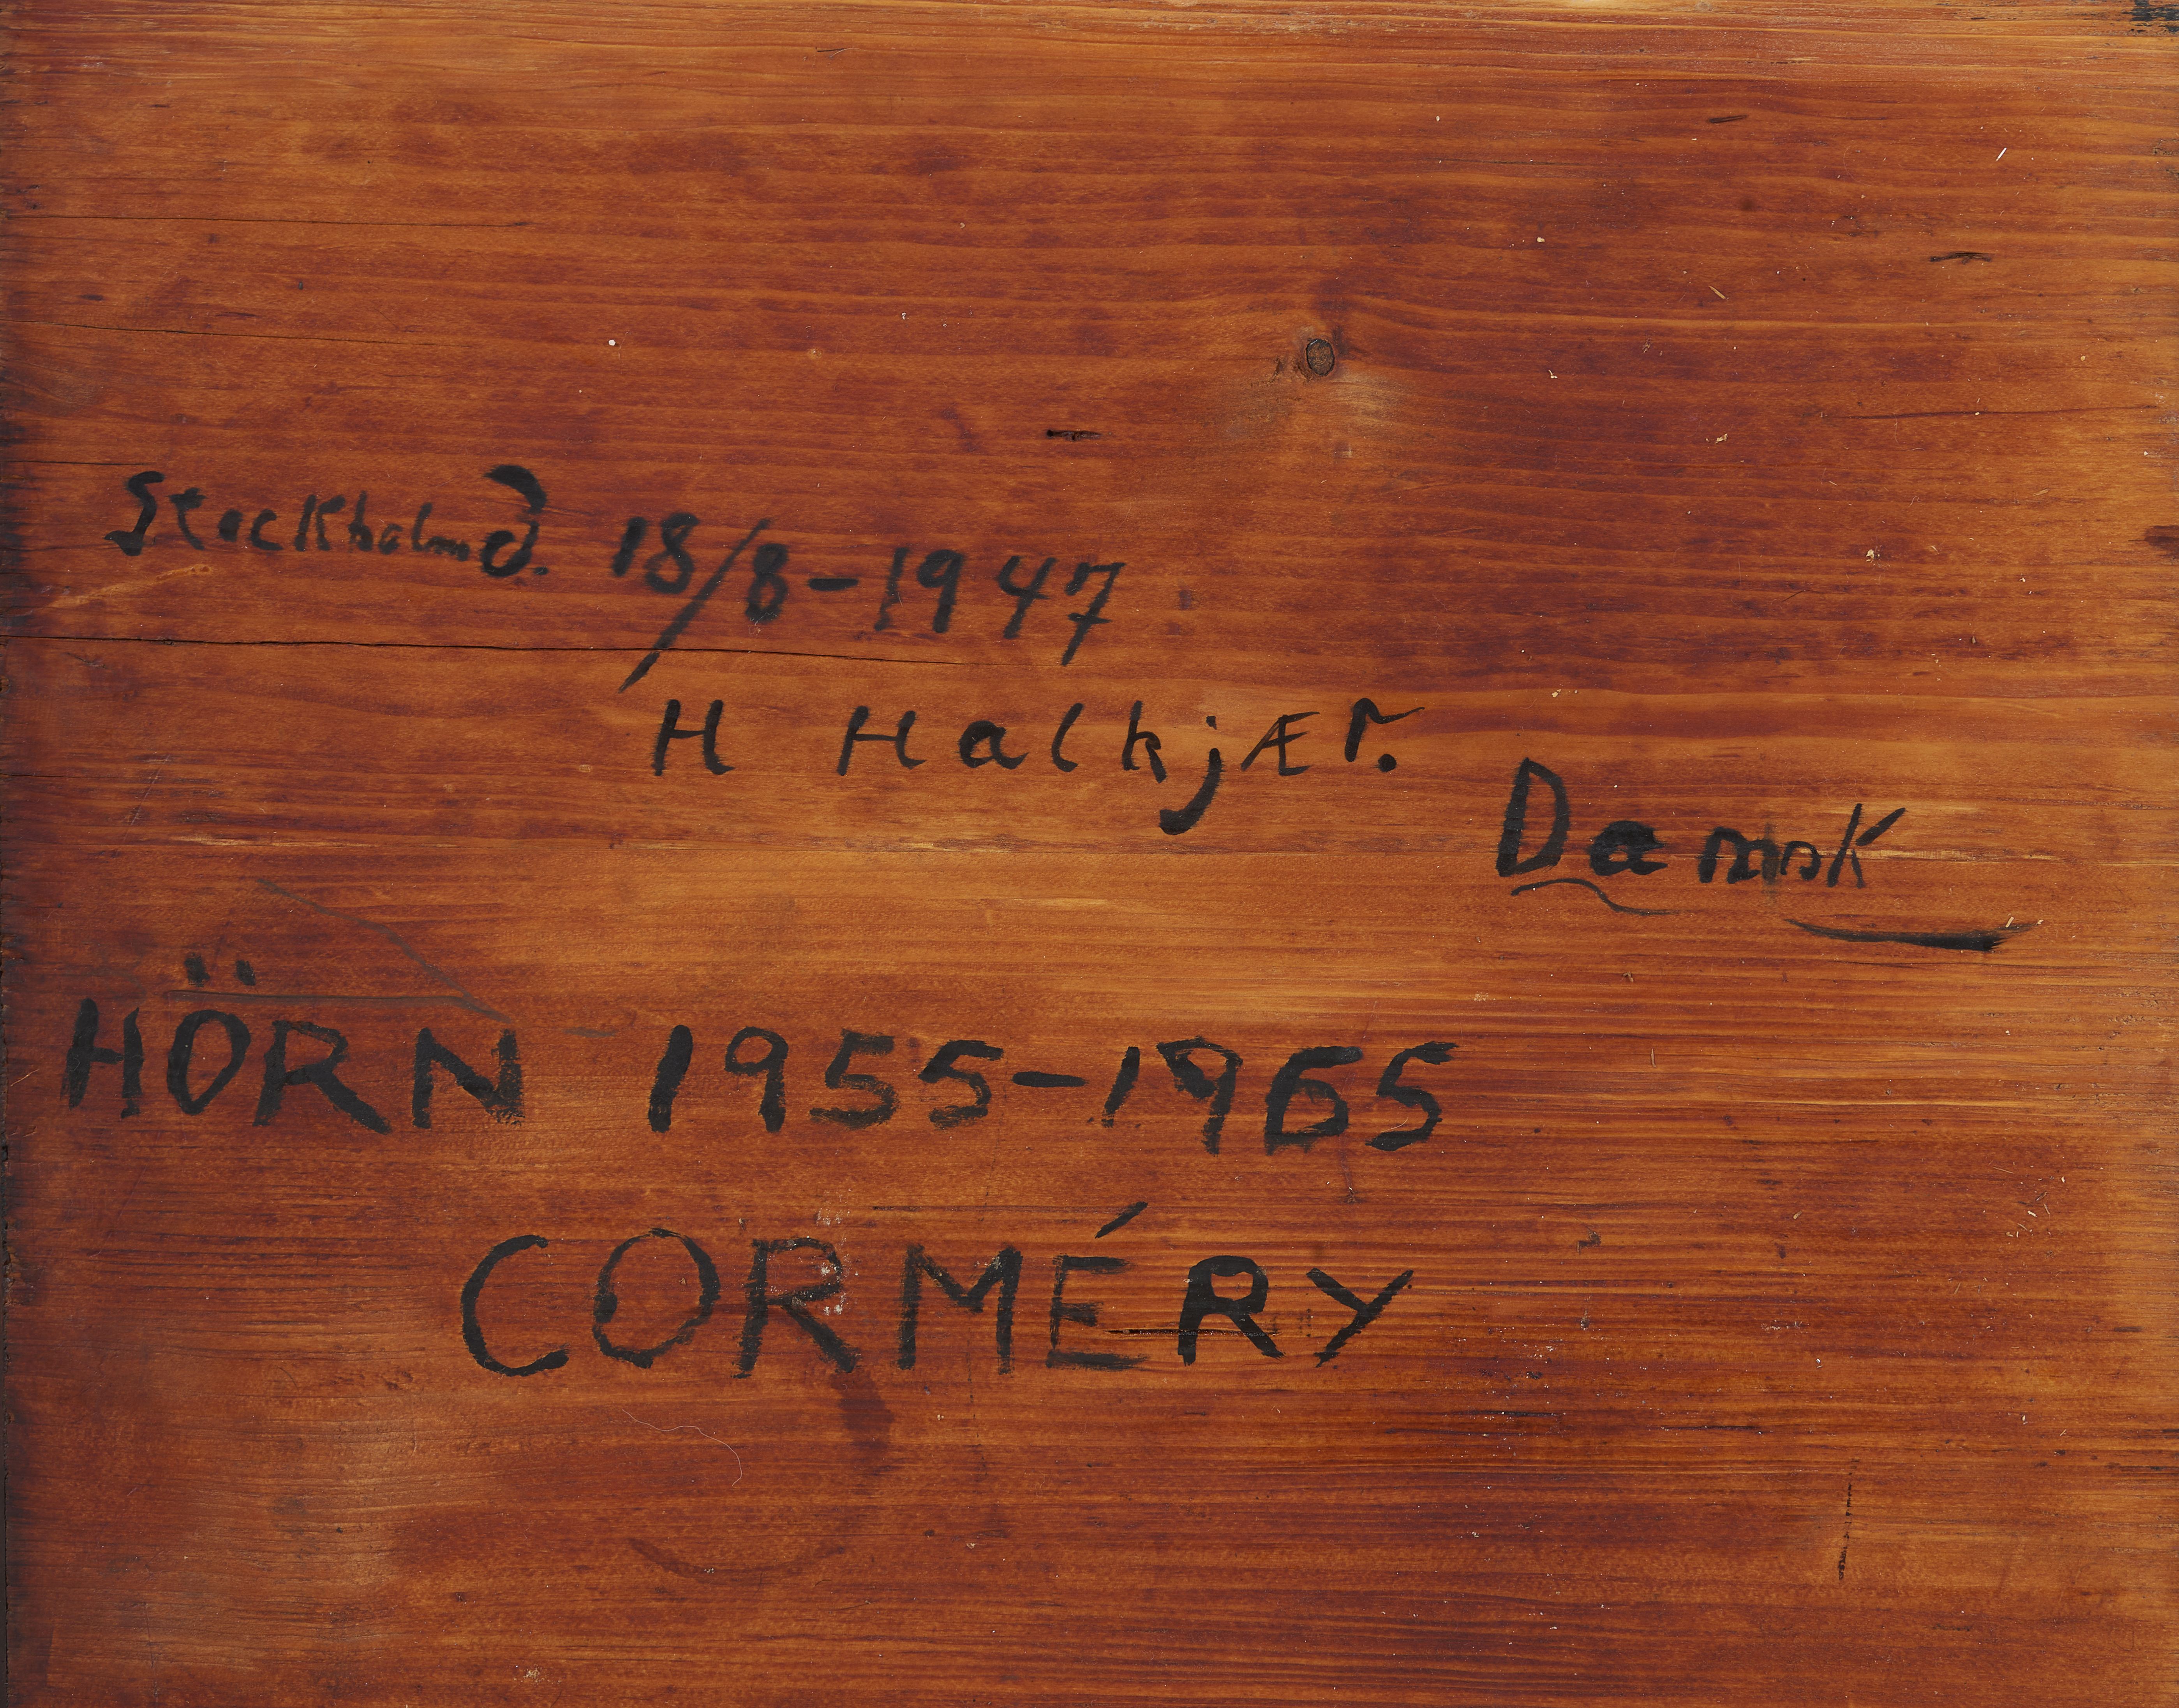 Stockholm d. 18/8-1947
H HalkjÆr.
Dansk
HÖRN 1955-1965
CORMÉRY